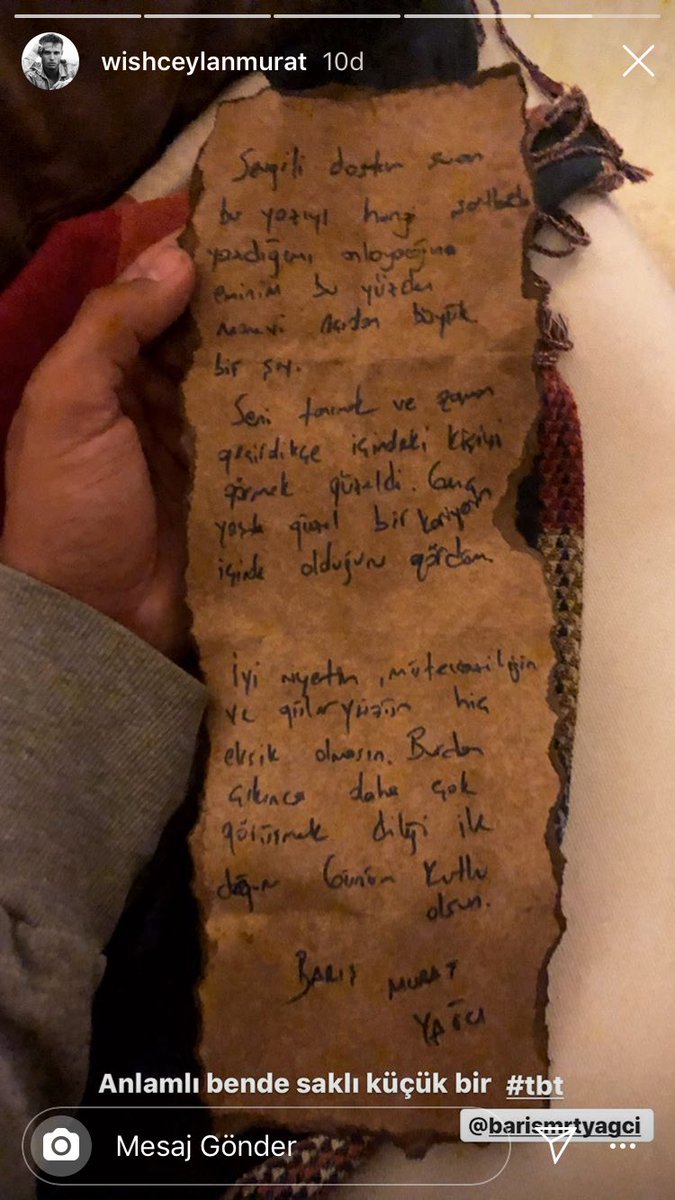 wishceylanmurat 10d
Sevgili dostum
bu yazıyı hangi
yazdığımı anlayacağına
eminim bu yüzden
manevi açıdan büyük
bir şey.
Seni tanımak ve zaman
geçirdikçe içindeki kişiyi
görmek güzeldi. Genç
yaşta güzel bir kariyerin
içinde olduğunu gördüm
İyi niyetin, mütevaziliğin
ve güler yüzün hiç
eksik olmasın. Burdan
çıkınca daha çok
görüşmek dileği ile
doğum Günün Kutlu
olsun.
BARIŞ MURAT
YAĞCI
Anlamlı bende saklı küçük bir #tbt
@barismrtyagci
Mesaj Gönder